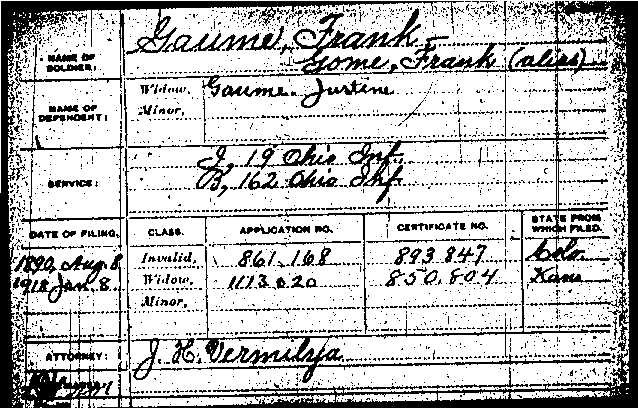 Gaume, Frank -
NAME OF SOLDIER: Gome, Frank (alias)
Widow, Gaume, Justine
NAME OF DEPENDENT: Minor,
I, 19 Ohio Inf.
SERVICE: B, 162 Ohio Inf.
DATE OF FILING. CLASS. APPLICATION NO. CERTIFICATE NO. STATE FROM WHICH FILED.
1890, Aug. 8. Invalid, 861.168 893.847 Colo.
1918 Jan. 8. Widow, 1113.020 850.804 Kans
Minor,
ATTORNEY: J. H. Vermilya